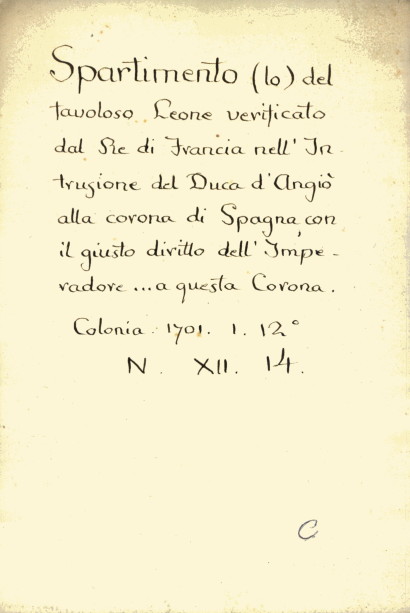 Spartimento (lo) del
favoloso Leone verificato
dal Re di Francia nell' In-
trusione del Duca d'Angiò
alla corona di Spagna, con
il giusto diritto dell' Impe-
radore ... a questa Corona.
Colonia. 1701. 1. 12°
N. XII. 14.
C